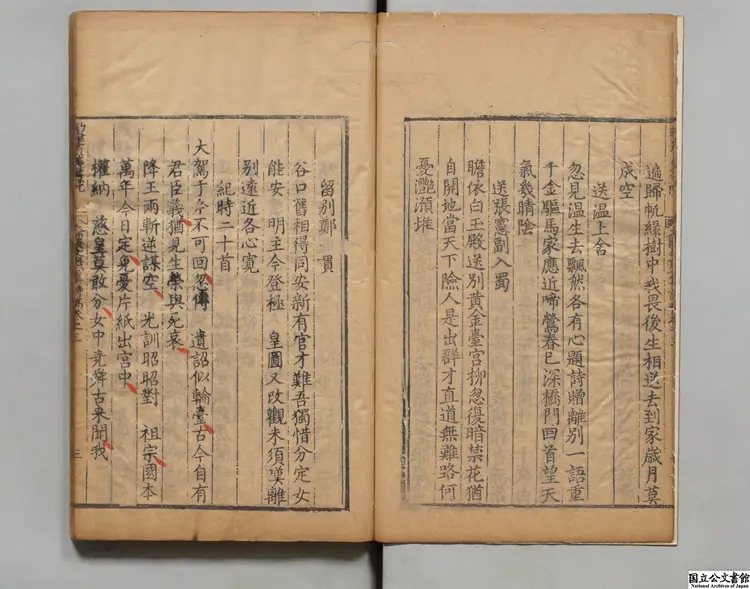 遄歸帆綠樹中我畏後生相送去到家歲月莫
成空
送温上舍
忽見温生去飄然各有心題詩贈離別一語重
千金驅馬家應近啼鶯春已深橋門回首望天
氣幾晴陰
送張憲副入蜀
瞻依白玉殿送別黄金臺宮柳忽復暗禁花猶
自開地當天下險人是出群才直道無難路何
憂灩澦堆
留別鄭貫
谷口舊相得同安新有官才難吾獨惜分定女
能安 明主今登極 皇圖又改觀未須嘆離
別遠近各心寛
紀時二十首
大駕于今不可回忽傳 遺詔似輪臺古今自有
君臣義猶見生榮與死哀
降王兩斬逆謀空 光訓昭昭對 祖宗國本
萬年今日定免憂片紙出宮中
權納 慈皇莫敢分女中堯舜古來聞我
三
国立公文書館
National Archives of Japan